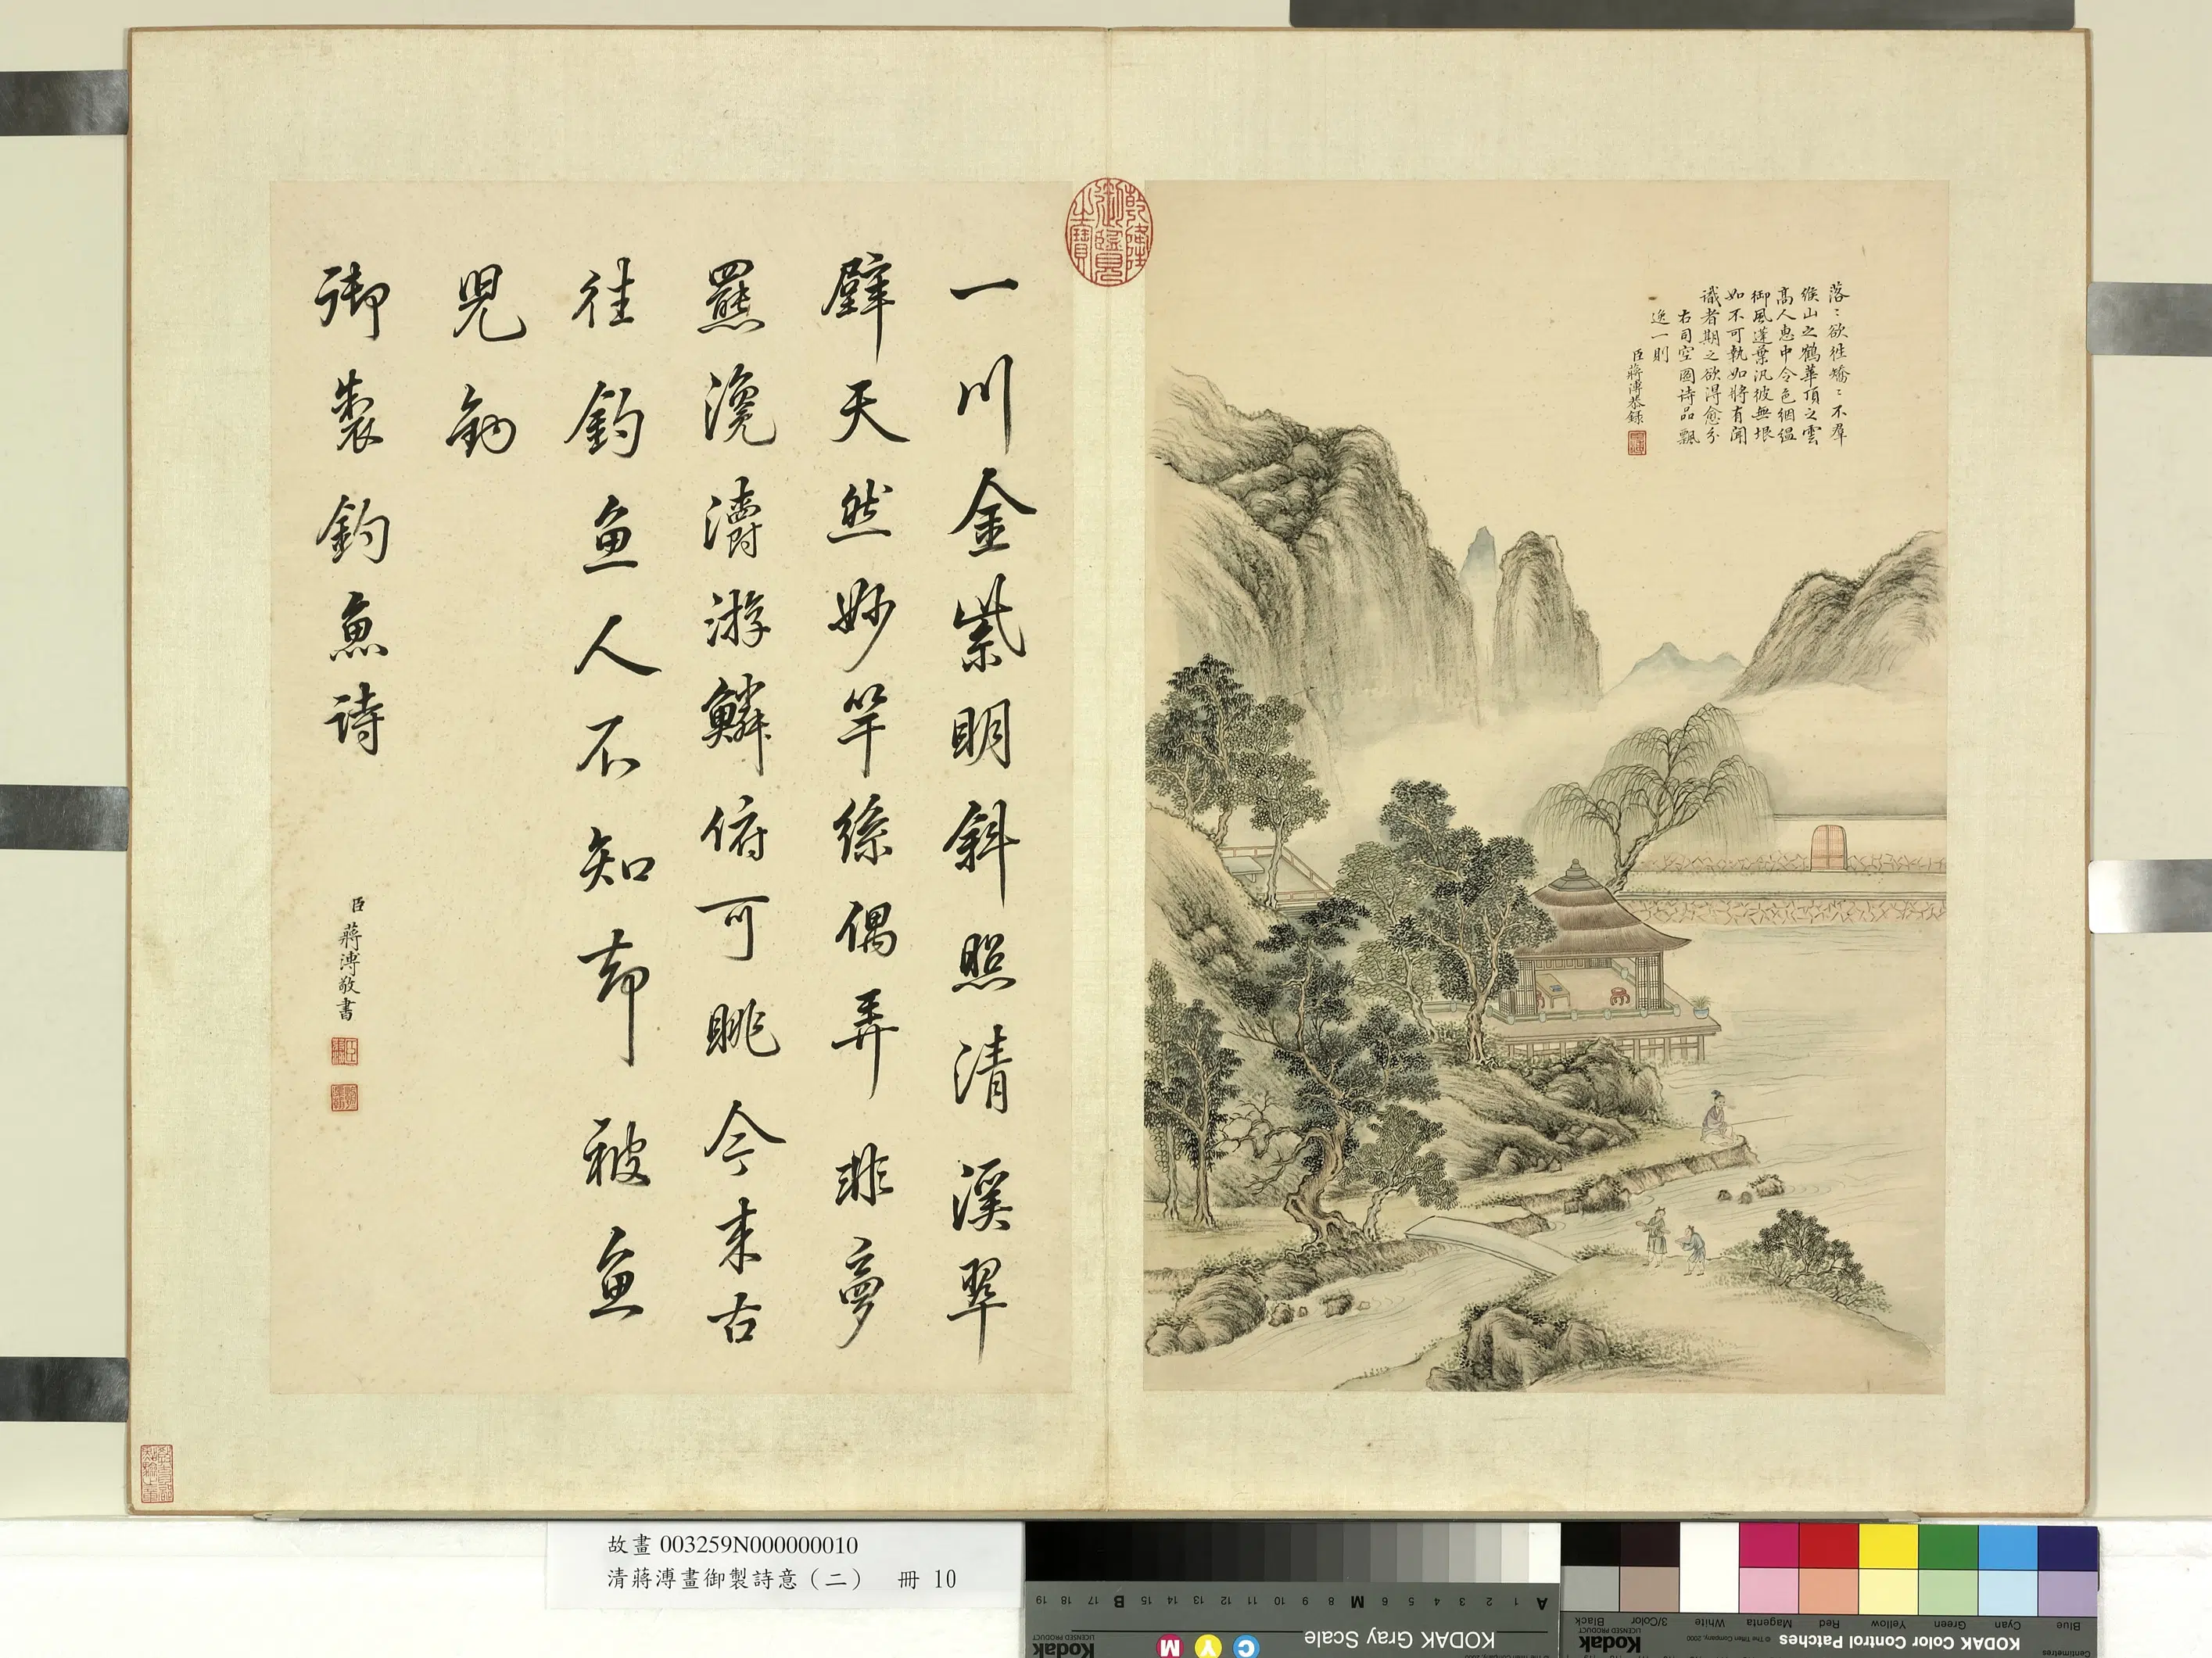 落〻欲往矯〻不羣
緱山之鶴華頂之雲
高人惠中令色絪縕
御風蓬葉汎彼無垠
如不可執如將有聞
識者期之欲得愈分
右司空圖詩品飄
逸一則
臣蔣溥恭錄
乾隆御覽之寶
一川金紫明斜照清溪翠
壁天然妙竿絲偶弄非夢
羆漾灂游鱗俯可眺今來古
往釣魚人不知却被魚
兒釣
御製釣魚詩
臣蔣溥敬書
故畫 003259N000000010
清蔣溥畫御製詩意（二） 冊 10
KODAK Gray Scale
Kodak
LICENSED PRODUCT
A 1 2 3 4 5 6 M 8 9 10 11 12 13 14 15 B 17 18 19
C Y M
KODAK Color Control Patches
Kodak
LICENSED PRODUCT
© The Tiffen Company, 2000
Centimetres
Blue Cyan Green Yellow Red Magenta White 3/Color Black